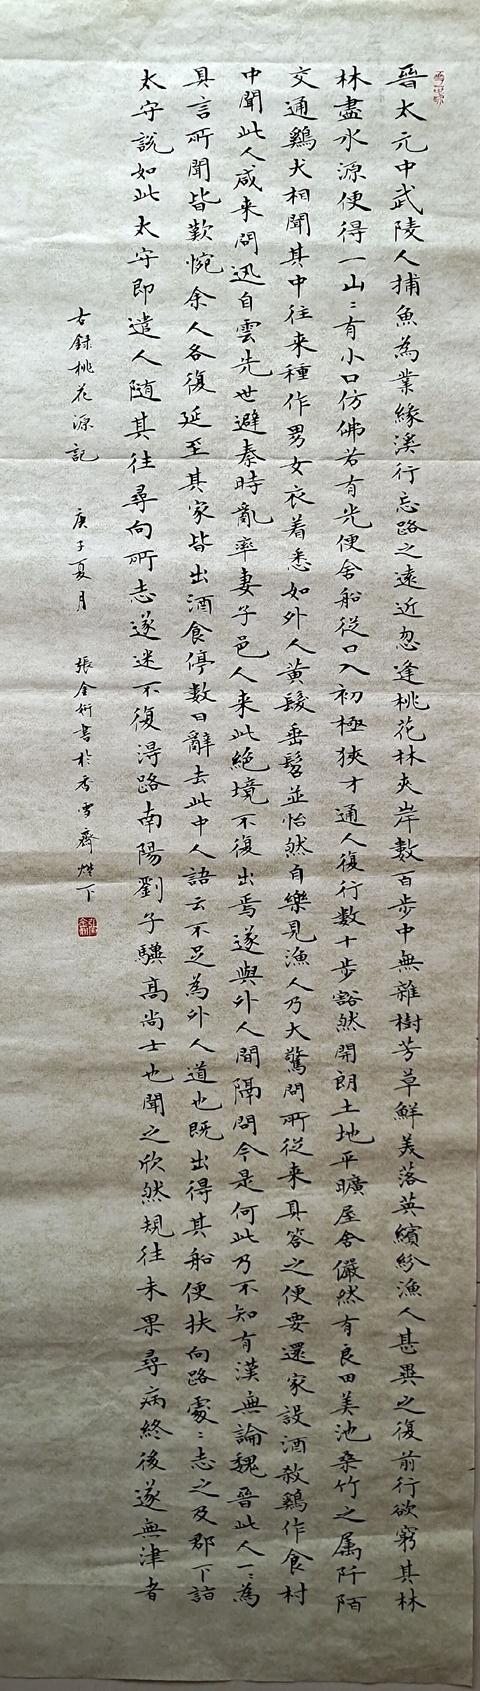 晉太元中武陵人捕魚為業緣溪行忘路之遠近忽逢桃花林夾岸數百步中無雜樹芳草鮮美落英繽紛漁人甚異之復前行欲窮其林
林盡水源便得一山〻有小口仿佛若有光便舍船從口入初極狹才通人復行數十步豁然開朗土地平曠屋舍儼然有良田美池桑竹之屬阡陌
交通鷄犬相聞其中往来種作男女衣着悉如外人黃髮垂髫並怡然自樂見漁人乃大驚問所從来具答之便要還家設酒殺鷄作食村
中聞此人咸来問迅自雲先世避秦時亂率妻子邑人来此絕境不復出焉遂與外人間隔問今是何此乃不知有漢無論魏晉此人一〻為
具言所聞皆歎惋余人各復延至其家皆出酒食停數日辭去此中人語云不足為外人道也既出得其船便扶向路處〻志之及郡下詣
太守說如此太守即遣人随其往尋向所志遂迷不復得路南陽劉子驥高尚士也聞之欣然規往未果尋病終後遂無津者
古錄桃花源記 庚子夏月 張金衍書於香雪齋燈下